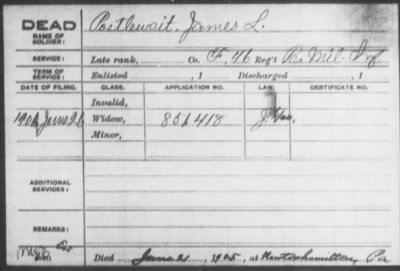 DEAD
NAME OF SOLDIER: Postlewait, James L.
SERVICE: Late rank, Co. F, 46 Reg't Pa. Mil. Inf.
TERM OF SERVICE: Enlisted , 1 Discharged , 1
DATE OF FILING. CLASS. APPLICATION NO. LAW. CERTIFICATE NO.
Invalid,
Widow, 851418
Minor,
ADDITIONAL SERVICES:
REMARKS:
Died June 21, 1905, at Pa